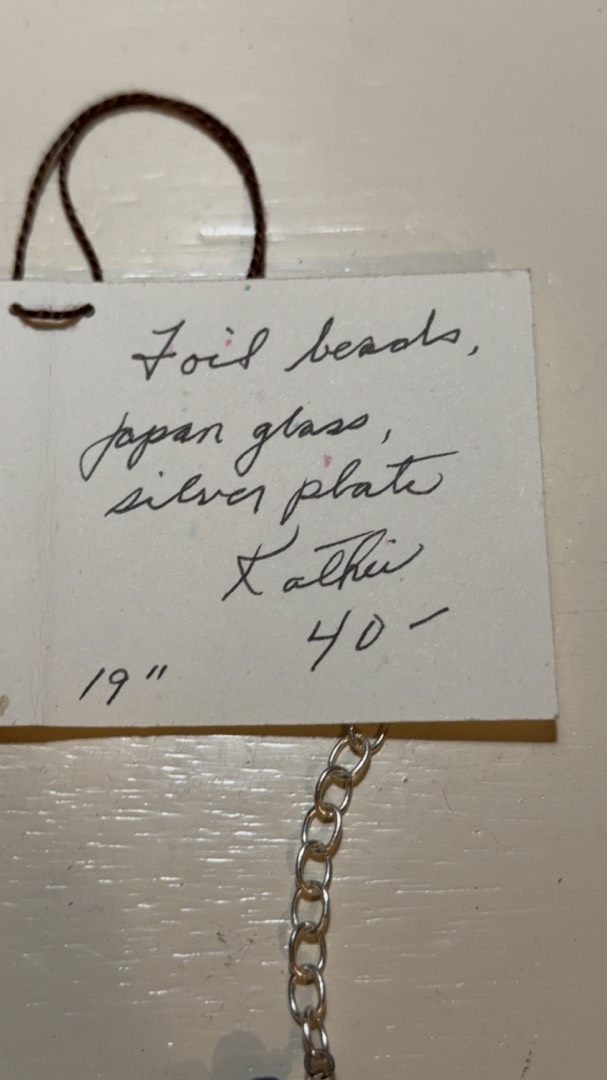 Foil beads,
Japan glass,
silver plate
Kathie
40-
19"